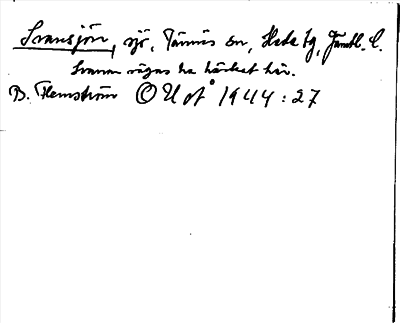 Svansjön, sjö, Tännäs sn, Hede tg, Jämtl. l.
Svanar sägas ha häckat här.
B. Flemström OUoÅ 1944:27